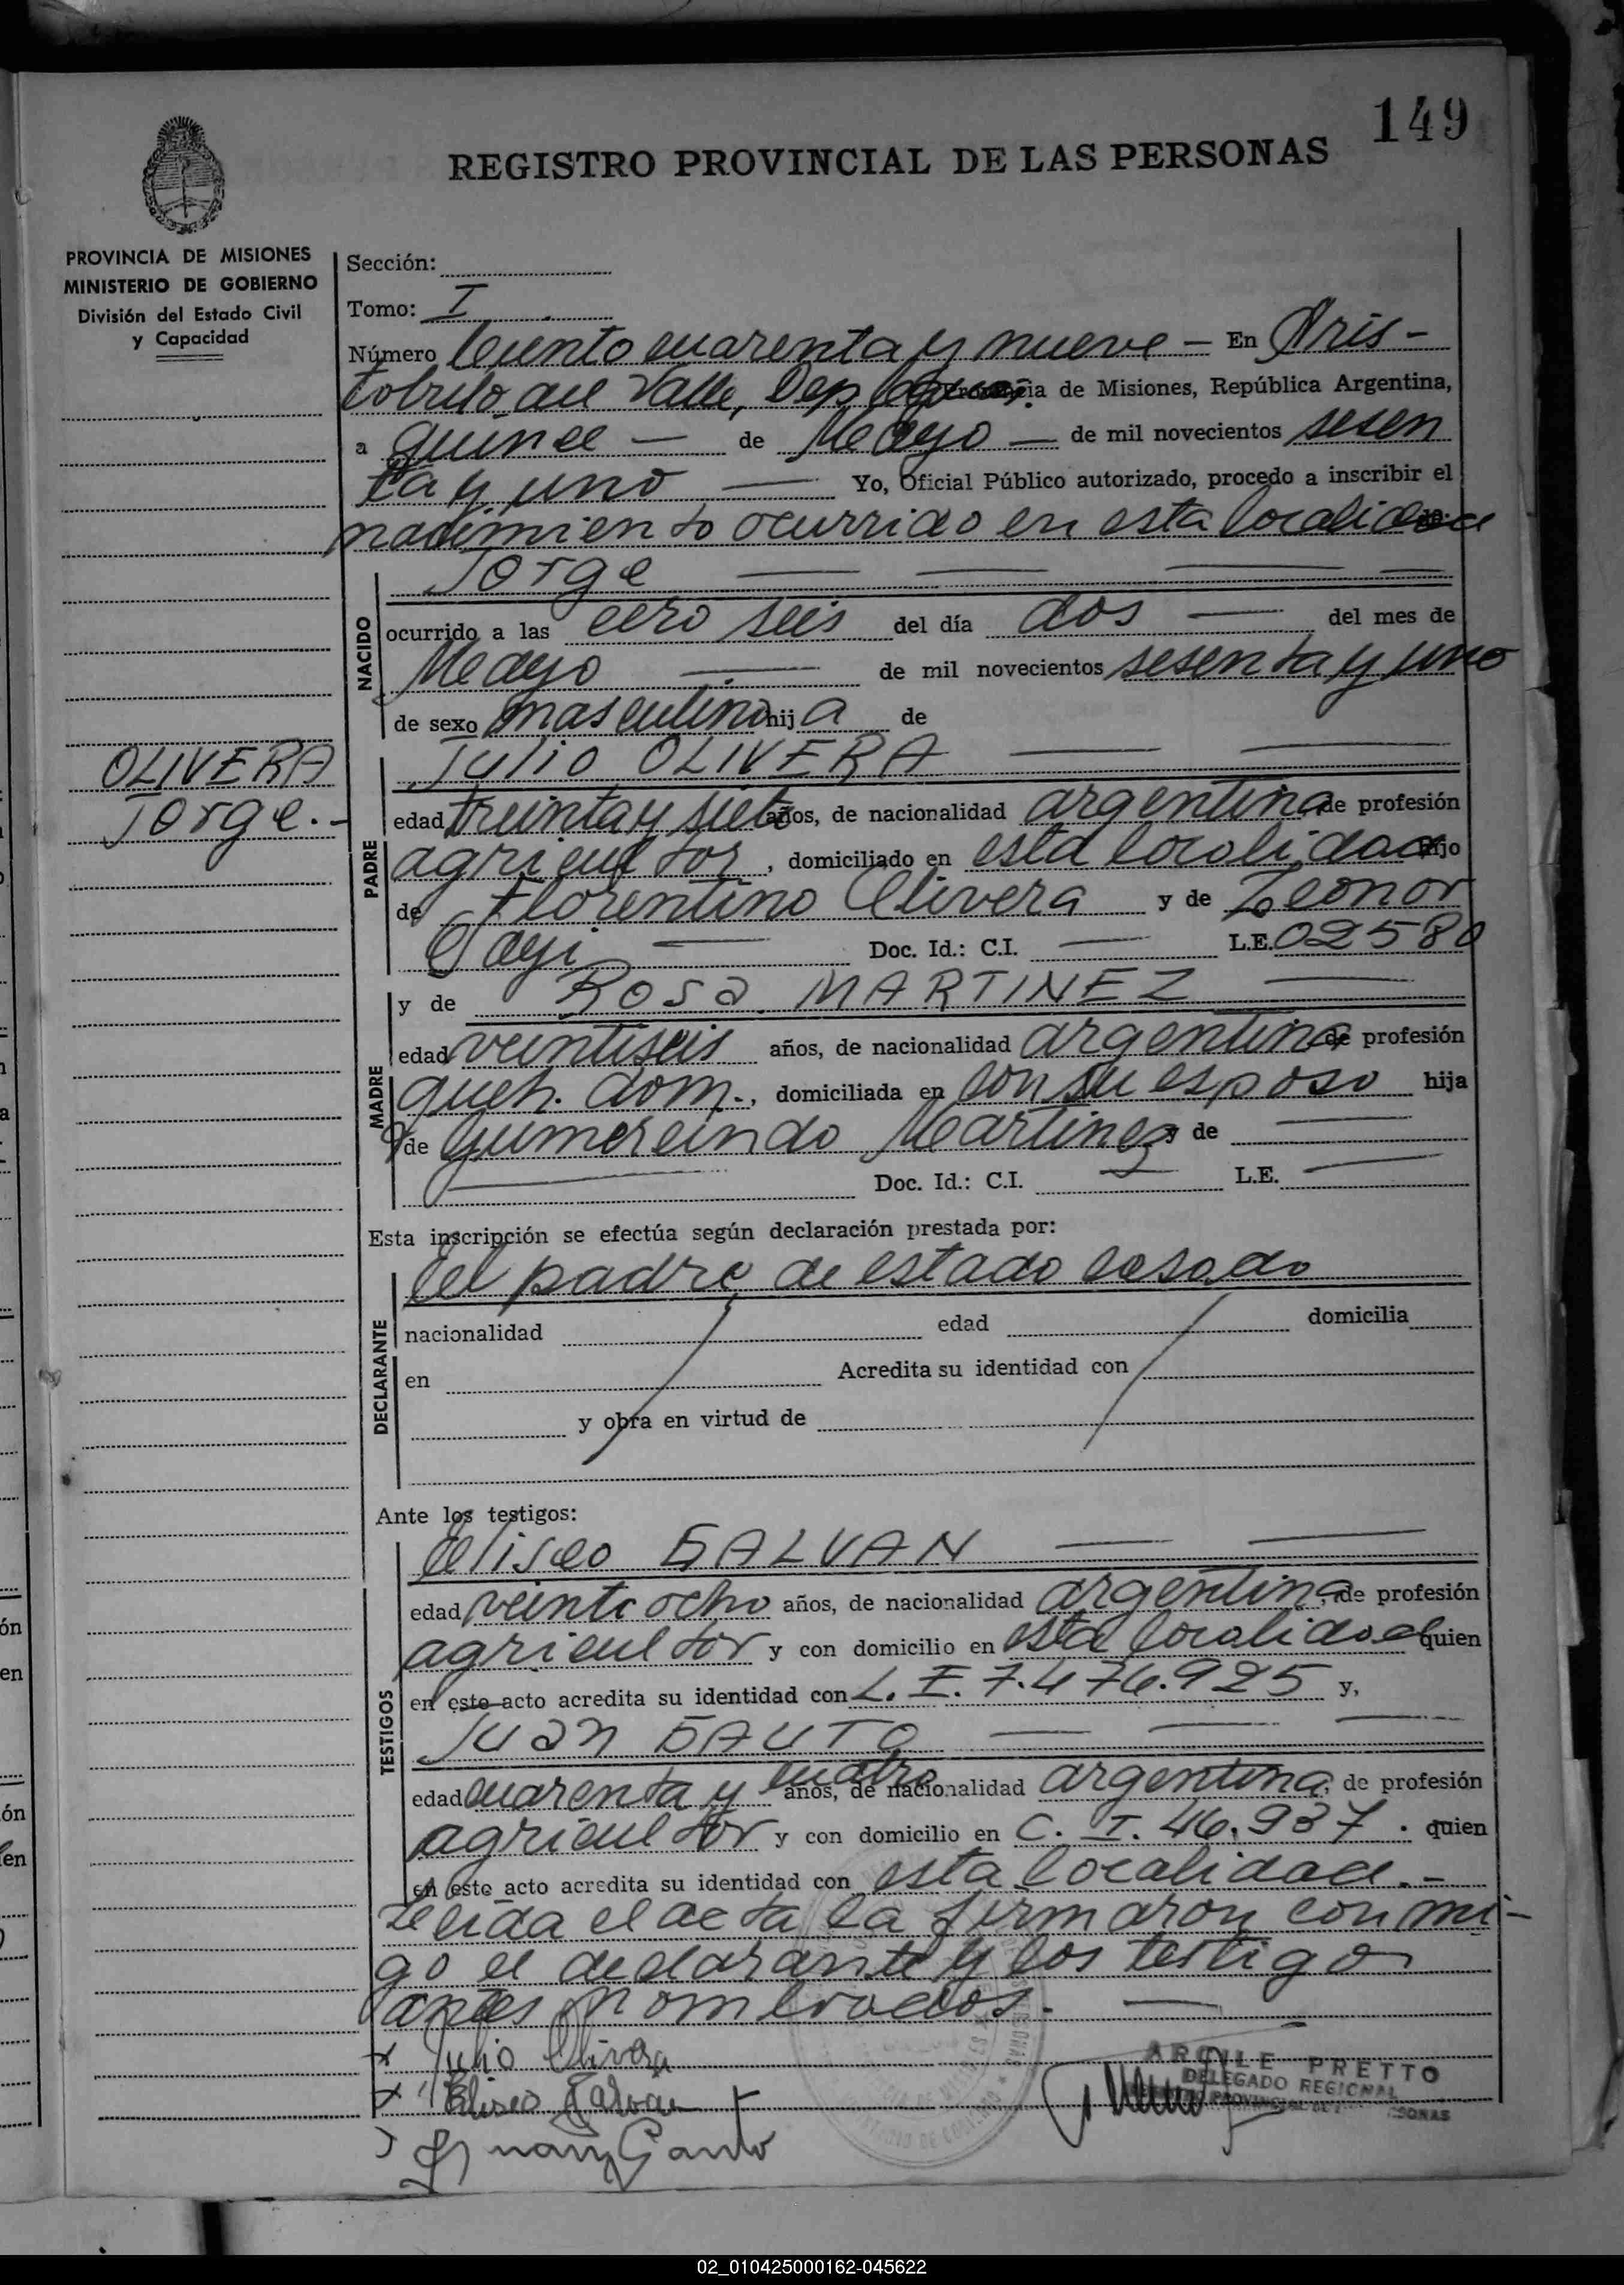 149
REGISTRO PROVINCIAL DE LAS PERSONAS
PROVINCIA DE MISIONES
MINISTERIO DE GOBIERNO
División del Estado Civil
y Capacidad
OLIVERA
Jorge.-
Sección:
Tomo: I
Número Ciento cuarenta y nueve — En Aris-
tobulo del Valle, Dep Provincia de Misiones, República Argentina,
a quince — de Mayo — de mil novecientos sesen
ta y uno — Yo, Oficial Público autorizado, procedo a inscribir el
nacimiento ocurrido en esta localidad de
NACIDO
Jorge — — — —
ocurrido a las cero seis del día dos — del mes de
Mayo — de mil novecientos sesenta y uno
de sexo masculino hij a de
PADRE
Julio OLIVERA — —
edad treinta y siete años, de nacionalidad argentina de profesión
agricultor, domiciliado en esta localidad hijo
de Florentino Olivera y de Leonor
— Doc. Id.: C.I. — L.E. 02580
MADRE
y de Rosa MARTINEZ —
edad veintiseis años, de nacionalidad argentina de profesión
queh. dom., domiciliada en con su esposo hija
de Gumercindo Martinez y de —
— Doc. Id.: C.I. — L.E. —
Esta inscripción se efectúa según declaración prestada por:
DECLARANTE
El padre de estado casado
nacionalidad edad domicilia
en Acredita su identidad con
y obra en virtud de
Ante los testigos:
TESTIGOS
Eliseo GALVAN — —
edad veinte ocho años, de nacionalidad argentina, de profesión
agricultor y con domicilio en esta localidad quien
en este acto acredita su identidad con L. E. 7.476.925 y,
Juan GAUTO — — —
edad cuarenta y cuatro años, de nacionalidad argentina, de profesión
agricultor y con domicilio en C. I. 46.937. quien
en este acto acredita su identidad con esta localidad.-
Leida el acta la firmaron conmi-
go el declarante y los testigo
antes nombrados. —
x Julio Olivera
x Eliseo Galvan
Juan Gauto
ARCILE PRETTO
DELEGADO REGIONAL
02_010425000162-045622